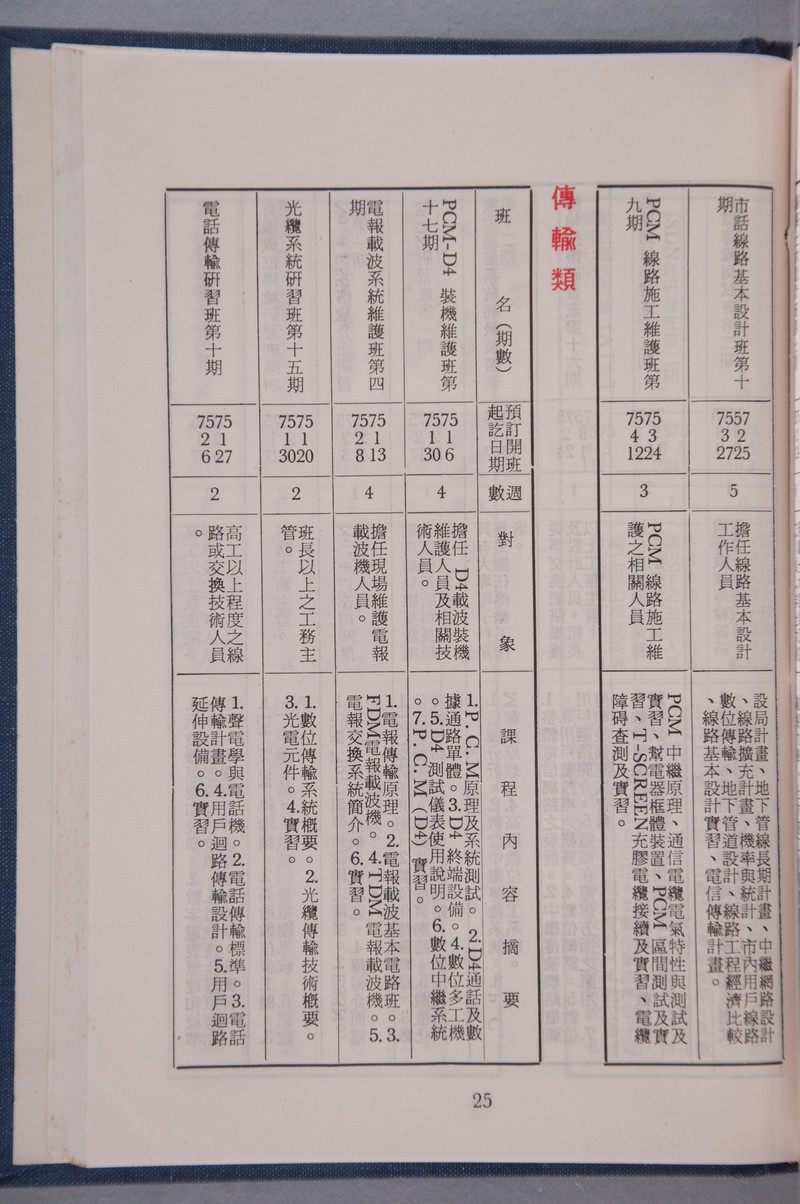 市話線路基本設計班第十
期
7557
3 2
2725
5
擔任線路基本設計
工作人員
設局計畫、地下管線長期計畫、中繼網路設計
、線路擴充計畫、機率與統計、市內用戶線路
數位傳輸、地下管道設計、線路工程經濟比較
、線路基本設計實習、電信傳輸計畫。
PCM 線路施工維護班第
九期
7575
4 3
1224
3
PCM 線路施工維
護之相關人員
PCM 中繼原理、通信電纜電氣特性與測試及
實習、幫電器框體裝置、PCM 區間測試及實
習、T-SCREEN 充膠電纜接續及實習、電纜
障碍查測及實習。
傳輸類
班名(期數)
預訂開班
起訖日期
週
數
對象
課程內容摘要
PCM-D4 裝機維護班第
十七期
7575
1 1
30 6
4
擔任 D4載波裝機
維護人員及相關技
術人員。
1.P.C.M原理及系統測試。2.D4通話及數
據通路單體。3.D4終端設備。4.數位多工機
。5.D4測試儀表使用說明。6.數位中繼系統
。7.P.C.M(D4)實習。
電報載波系統維護班第四
期
7575
2 1
8 13
4
擔任現場維護電報
載波機人員。
1.電報傳輸原理。2.電報載波基本電路班。3.
FDM電報載波機。4.TDM 電報載波機。5.
電報交換系統簡介。6.實習。
光纜系統研習班第十五期
7575
1 1
3020
2
班長以上之工務主
管。
1.數位傳輸系統概要。2.光纜傳輸技術概要。
3.光電元件。4.實習。
電話傳輸研習班第十期
7575
2 1
6 27
2
高工以上程度之線
路或交換技術人員
。
1.聲電學與電話機。2.電話傳輸標準。3.電話
傳輸計畫。4.用戶迴路傳輸設計。5.用戶迴路
延伸設備。6.實習。
25